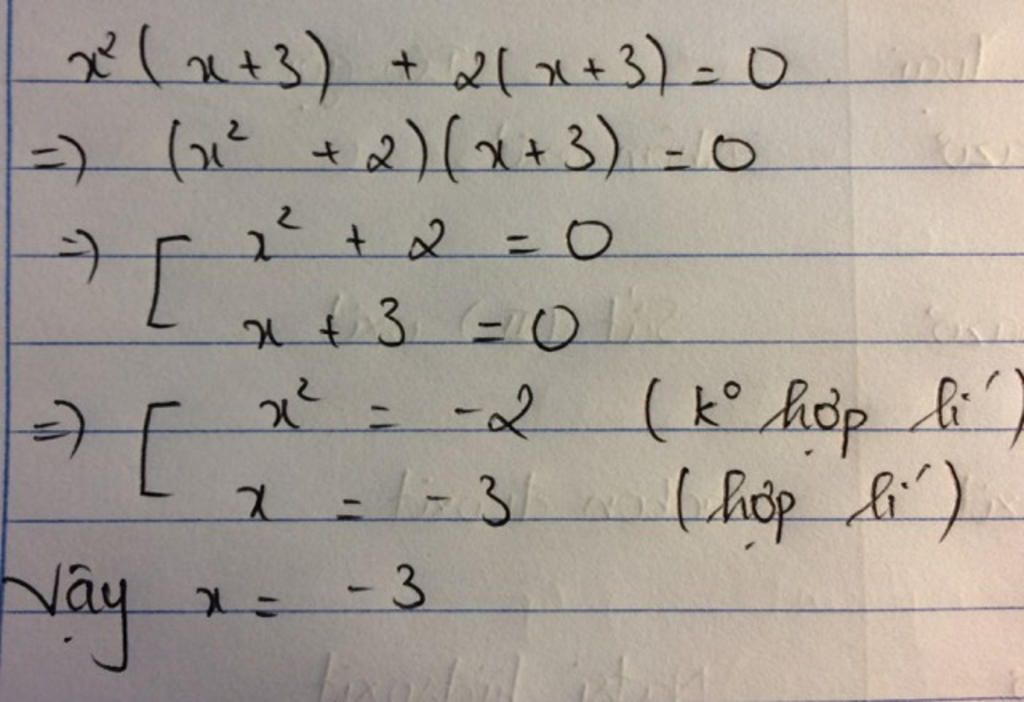 x² ( x + 3 ) + 2 ( x + 3 ) = 0
=> ( x² + 2 ) ( x + 3 ) = 0
=> [ x² + 2 = 0
x + 3 = 0
=> [ x² = -2 ( k° hợp lí )
x = -3 ( hợp lí )
Vậy x = -3